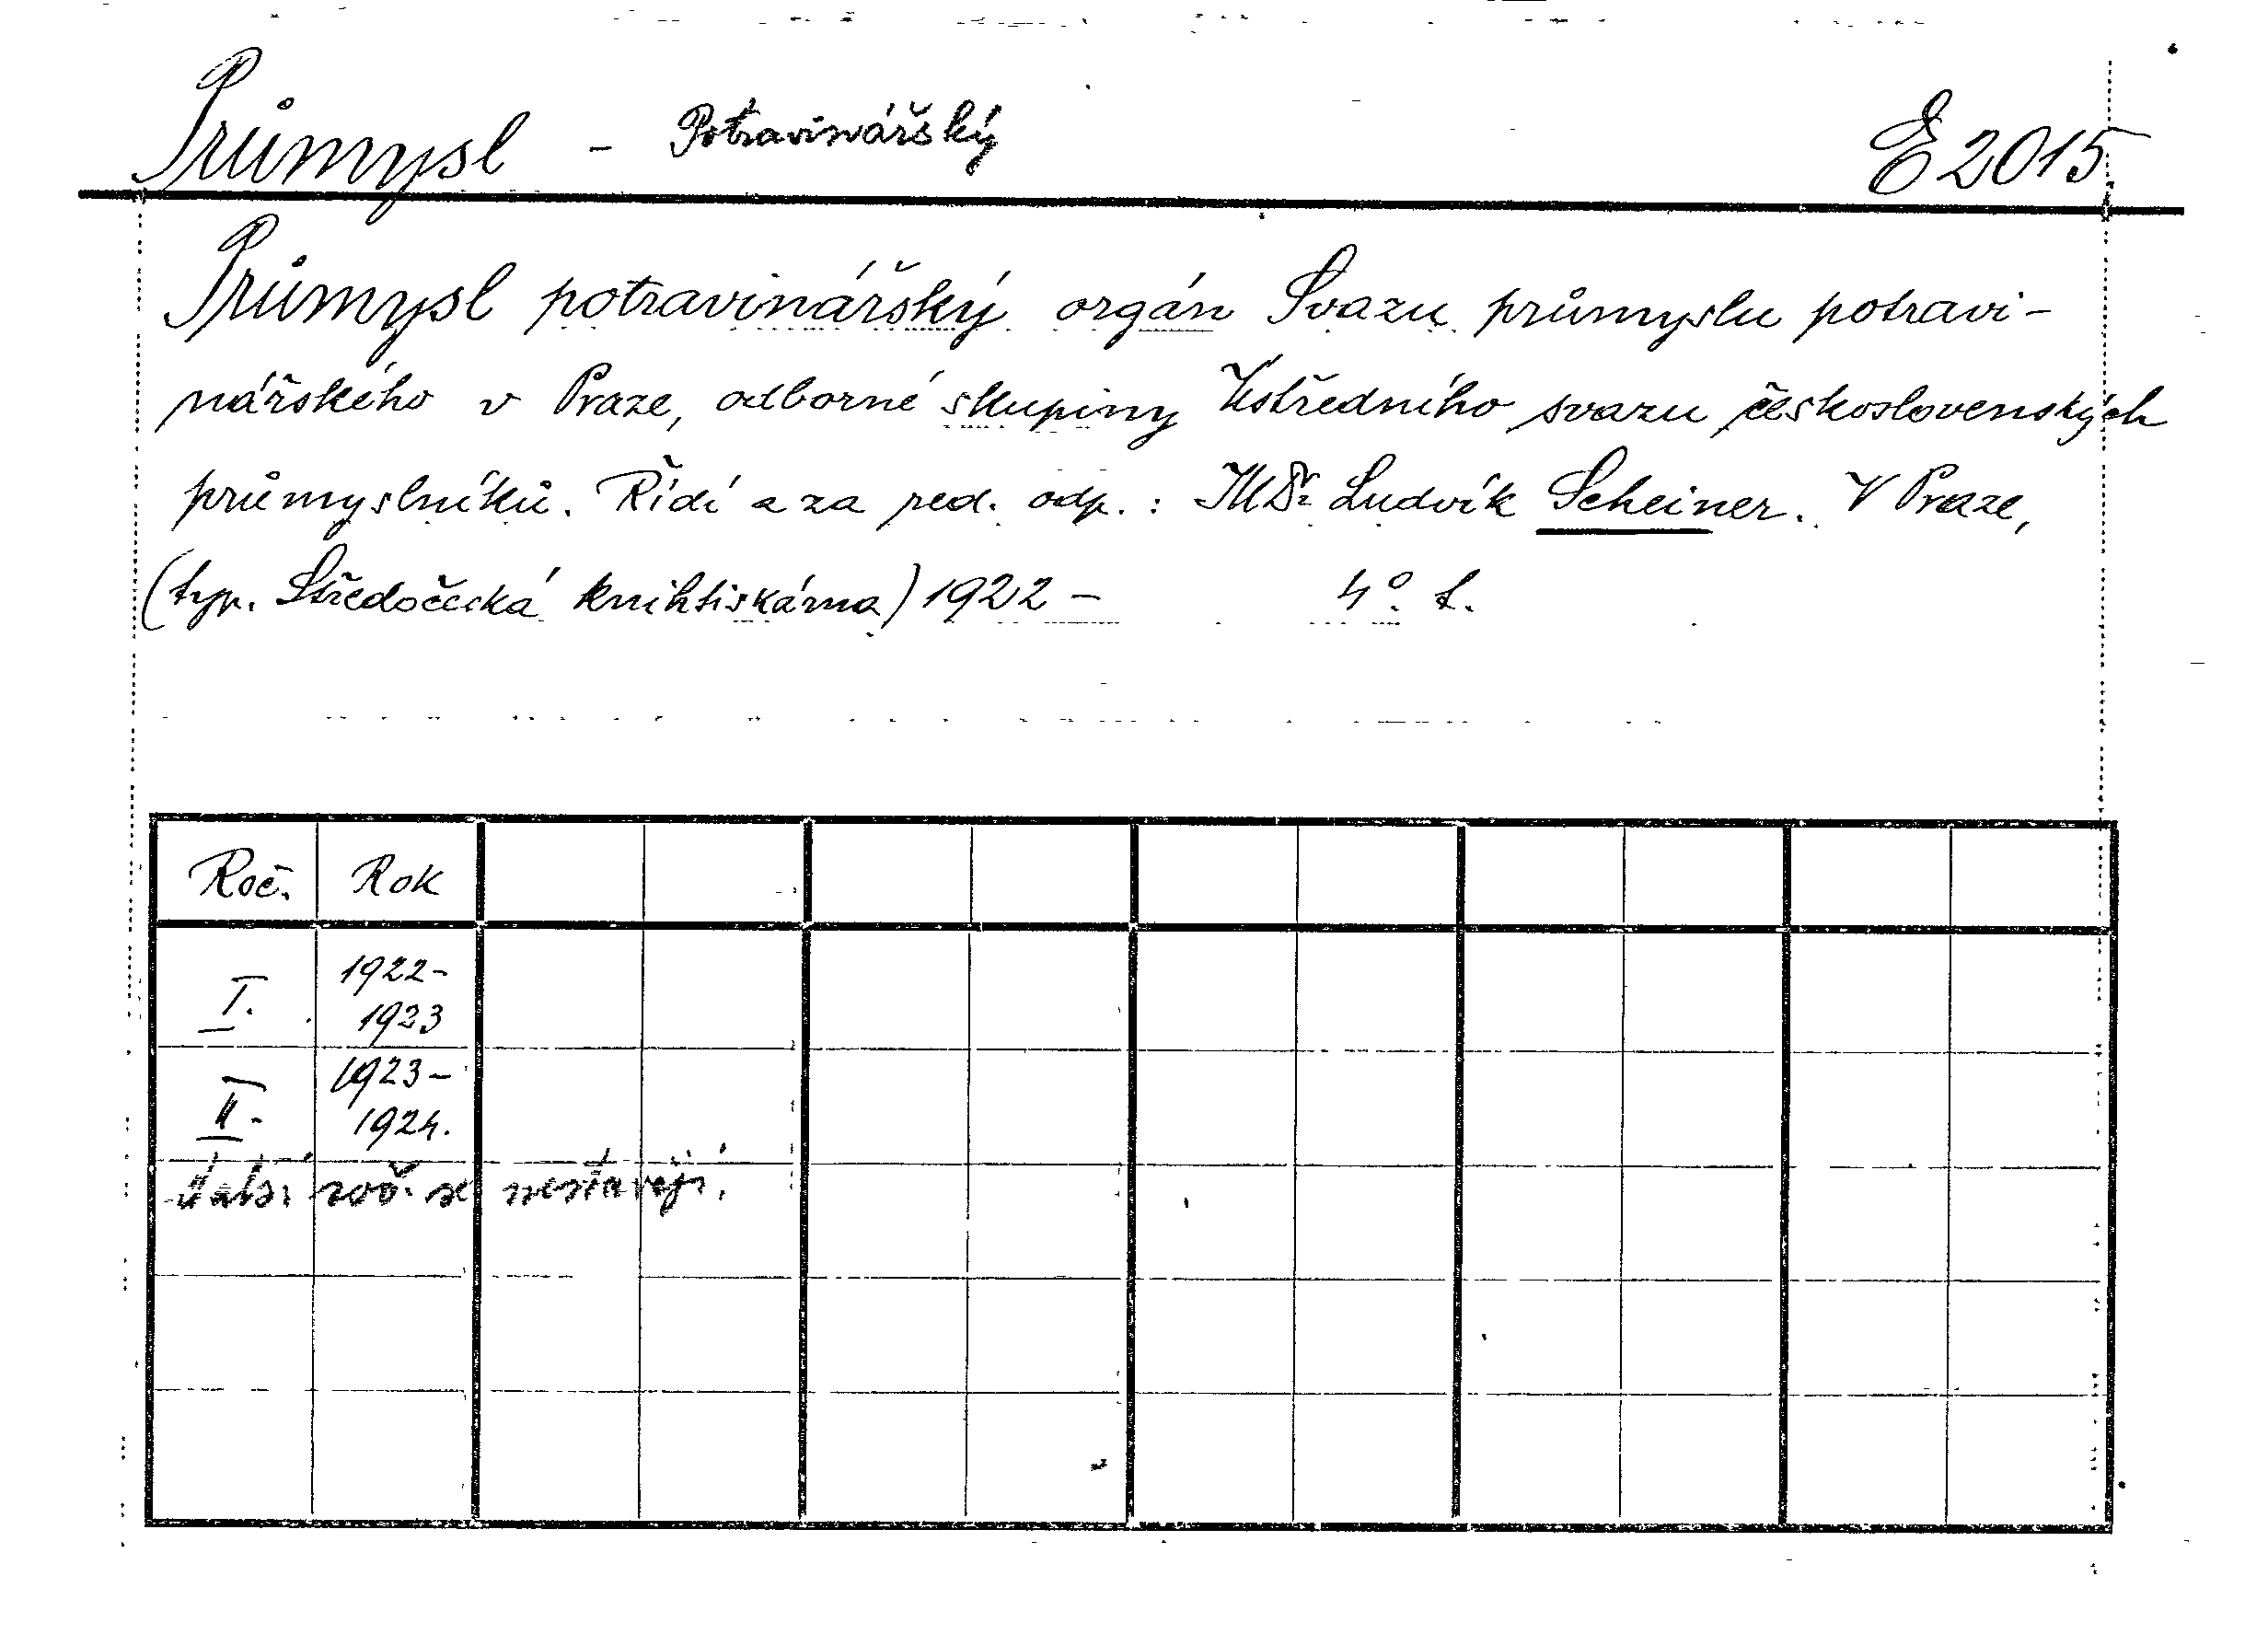 Průmysl - Potravinářský E 2015
Průmysl potravinářský orgán Svazu průmyslu potravi-
nářského v Praze, odborné skupiny Ústředního svazu československých
průmyslníků. Řídí a za red. odp.: JUDr Ludvík Scheiner. V Praze,
(typ. Středočeská knihtiskárna) 1922 - 4°. f.
Roč. Rok
I. 1922-
1923
II. 1923-
1924.
Další roč. se nestavějí.